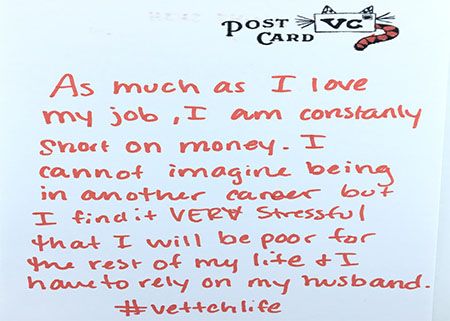 POST CARD VC
As much as I love
my job, I am constanly
short on money. I
cannot imagine being
in another career but
I find it VERY stressful
that I will be poor for
the rest of my life & I
have to rely on my husband.
#vettchlife